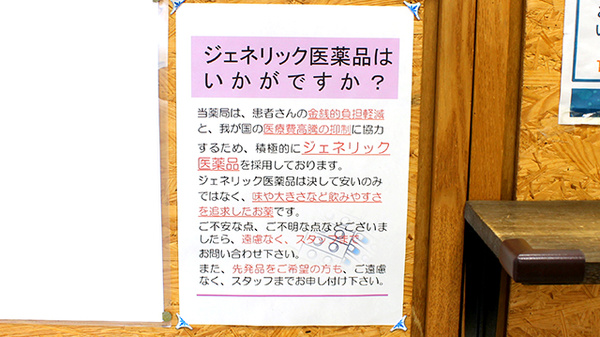 ジェネリック医薬品は
いかがですか？
当薬局は、患者さんの金銭的負担軽減
と、我が国の医療費高騰の抑制に協力
するため、積極的にジェネリック
医薬品を採用しております。
ジェネリック医薬品は決して安いのみ
ではなく、味や大きさなど飲みやすさ
を追求したお薬です。
ご不安な点、ご不明な点などございま
したら、遠慮なく、スタッフまで
お問い合わせ下さい。
また、先発品をご希望の方も、ご遠慮
なく、スタッフまでお申し付け下さい。